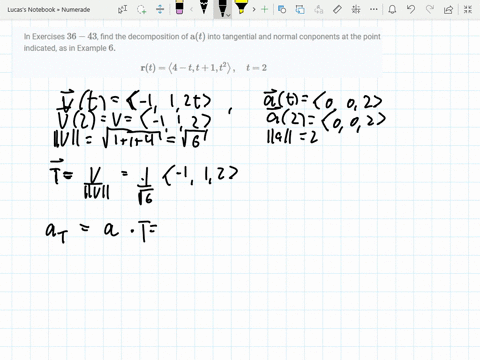 Lucas's Notebook • Numerade
In Exercises 36 – 43, find the decomposition of a(t) into tangential and normal components at the point
indicated, as in Example 6.
r(t) = ⟨4 − t, t + 1, t²⟩, t = 2
v⃗(t) = <-1, 1, 2t> , a⃗(t) = <0, 0, 2>
v⃗(2) = v = <-1, 1, 2> a⃗(2) = <0, 0, 2>
||v|| = √1+1+4 = √6 ||a|| = 2
T⃗ = v/||v|| = 1/√6 <-1, 1, 2>
a_T = a · T =